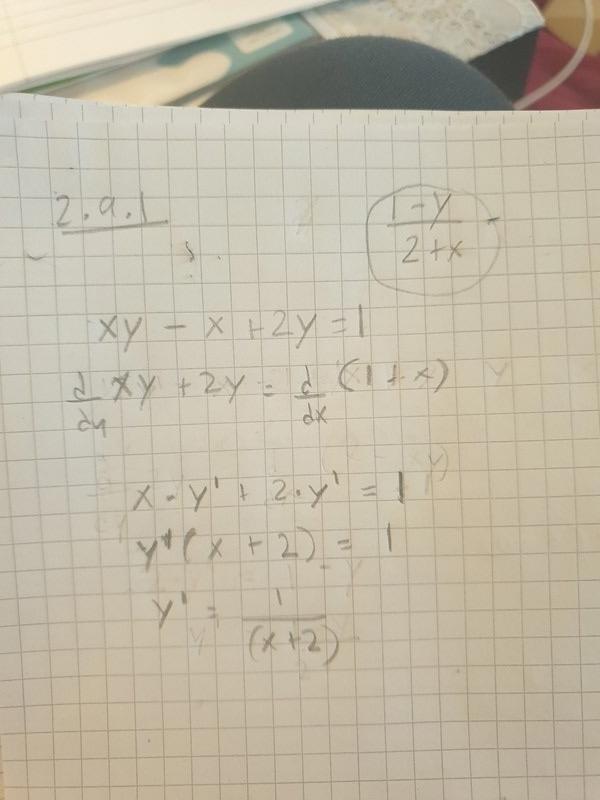 2.9.1
1-y
2+x
xy - x + 2y = 1
d/dy xy + 2y = d/dx (1 + x)
x · y' + 2 · y' = 1
y'(x + 2) = 1
y' = 1/(x+2)